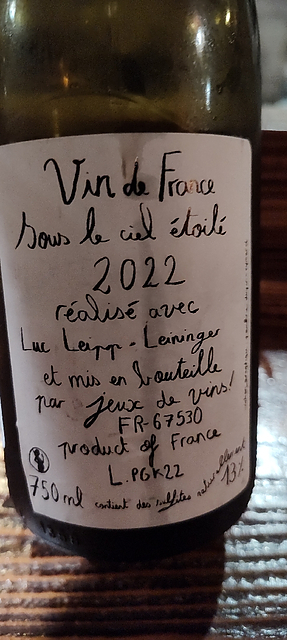 Vin de France
Sous le ciel étoilé
2022
réalisé avec
Luc Leipp - Leininger
et mis en bouteille
par jeux de vins!
FR-67530
product of France
L.PGK22
750 ml contient des sulfites naturellement 13%